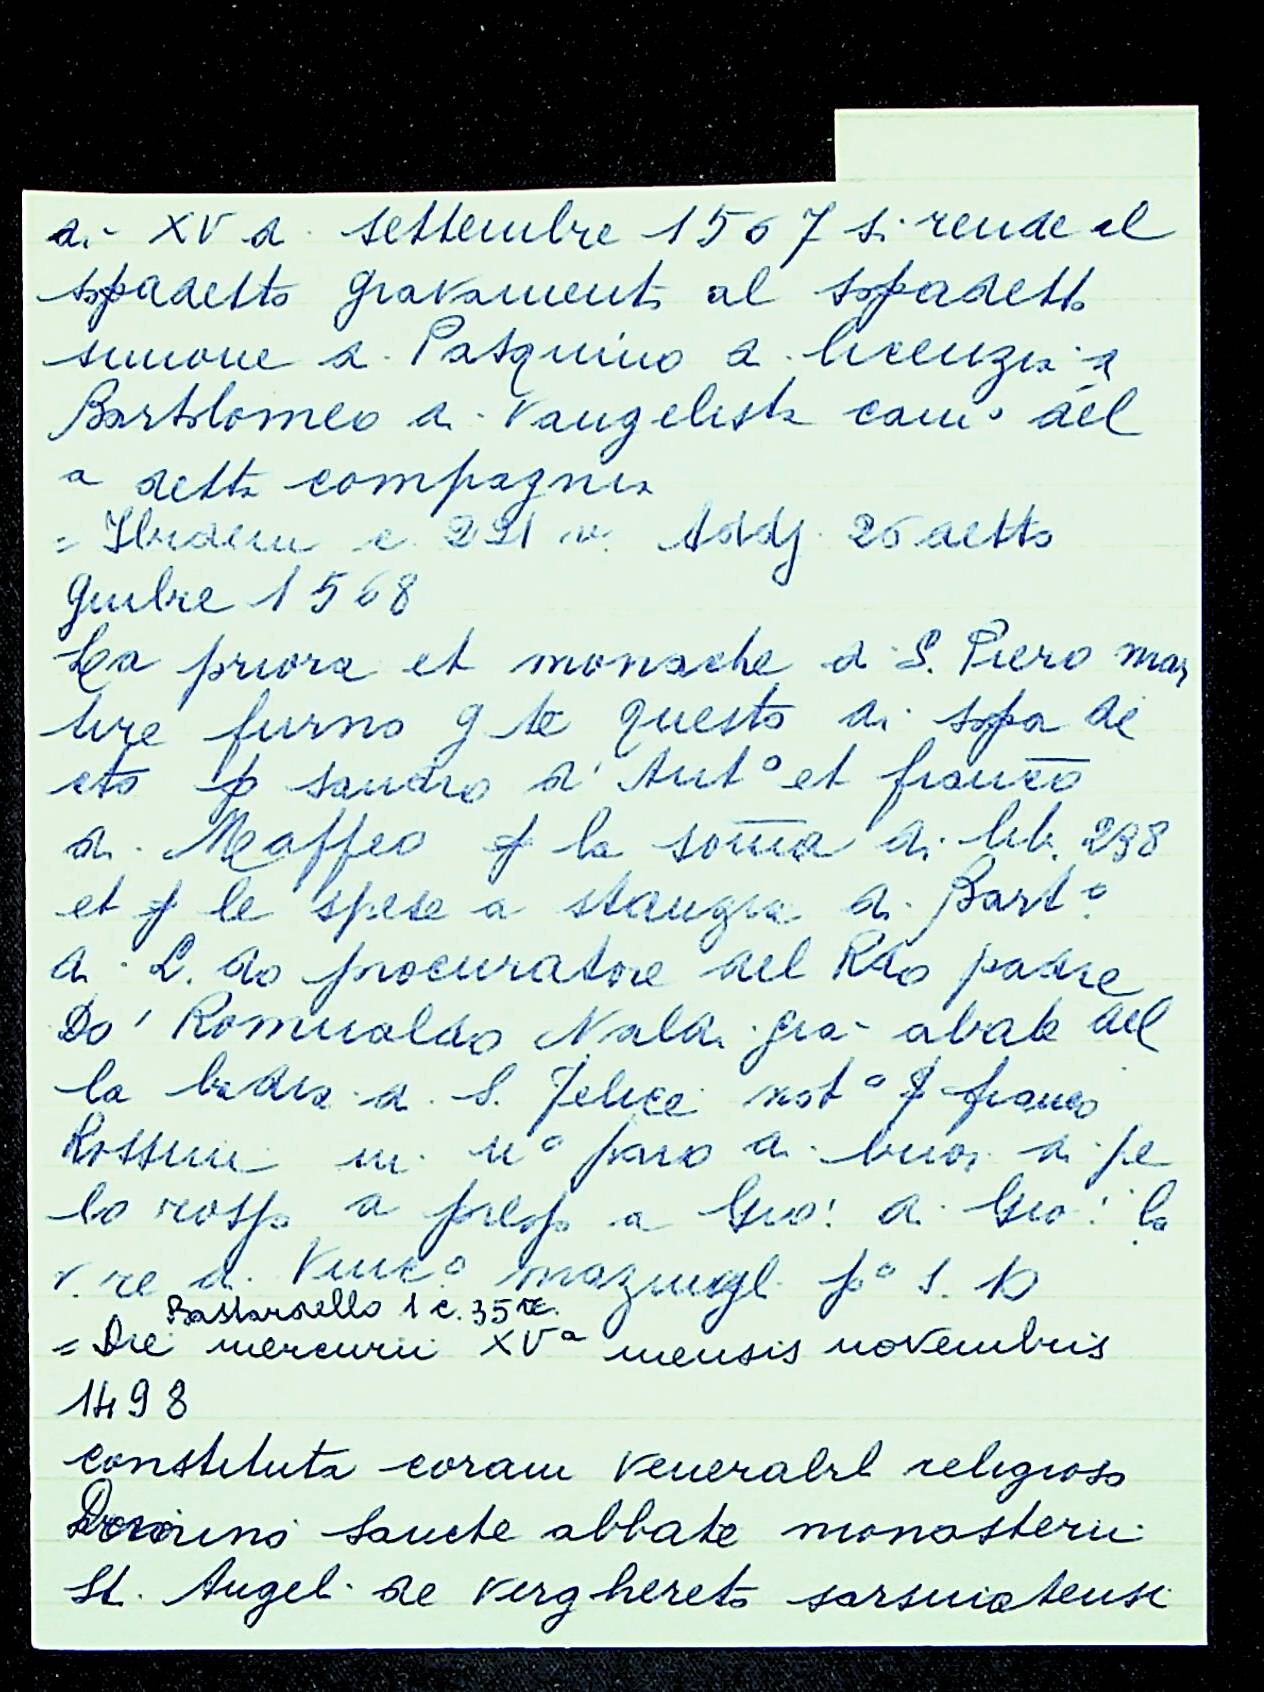 di XV di settembre 1567 si rende el
sopradetto gravamento al sopradetto
simone di Pasquino di licenzia di
Bartolomeo di Vangelista cam.o del
a detta compagnia
= Ibidem c. 221 v. Addj 26 detto
9mbre 1568
La priora et monache di S. Piero mar
tire furno g te questo di sopra de
cto p sandro d'Ant.o et franco
di Maffeo p la soma di lib. 298
et p le spese a stanzia di Bart.o
di L.do procuratore del Rdo padre
Do' Romualdo Naldi gia abate del
la badia di S. Felice not.o p franco
Rossini in n.o paro di buoi di pe
lo rosso a presso a Gio: di Gio: la
v.re di Vinc.o mazingi p.o S. D
Bastardello 1 c. 35 r.
= Die mercurii XVa mensis novembris
1498
constituta coram venerabil religioso
Domino Sancte abbate monasterii
St. Angeli de Verghereto sarsinatensi